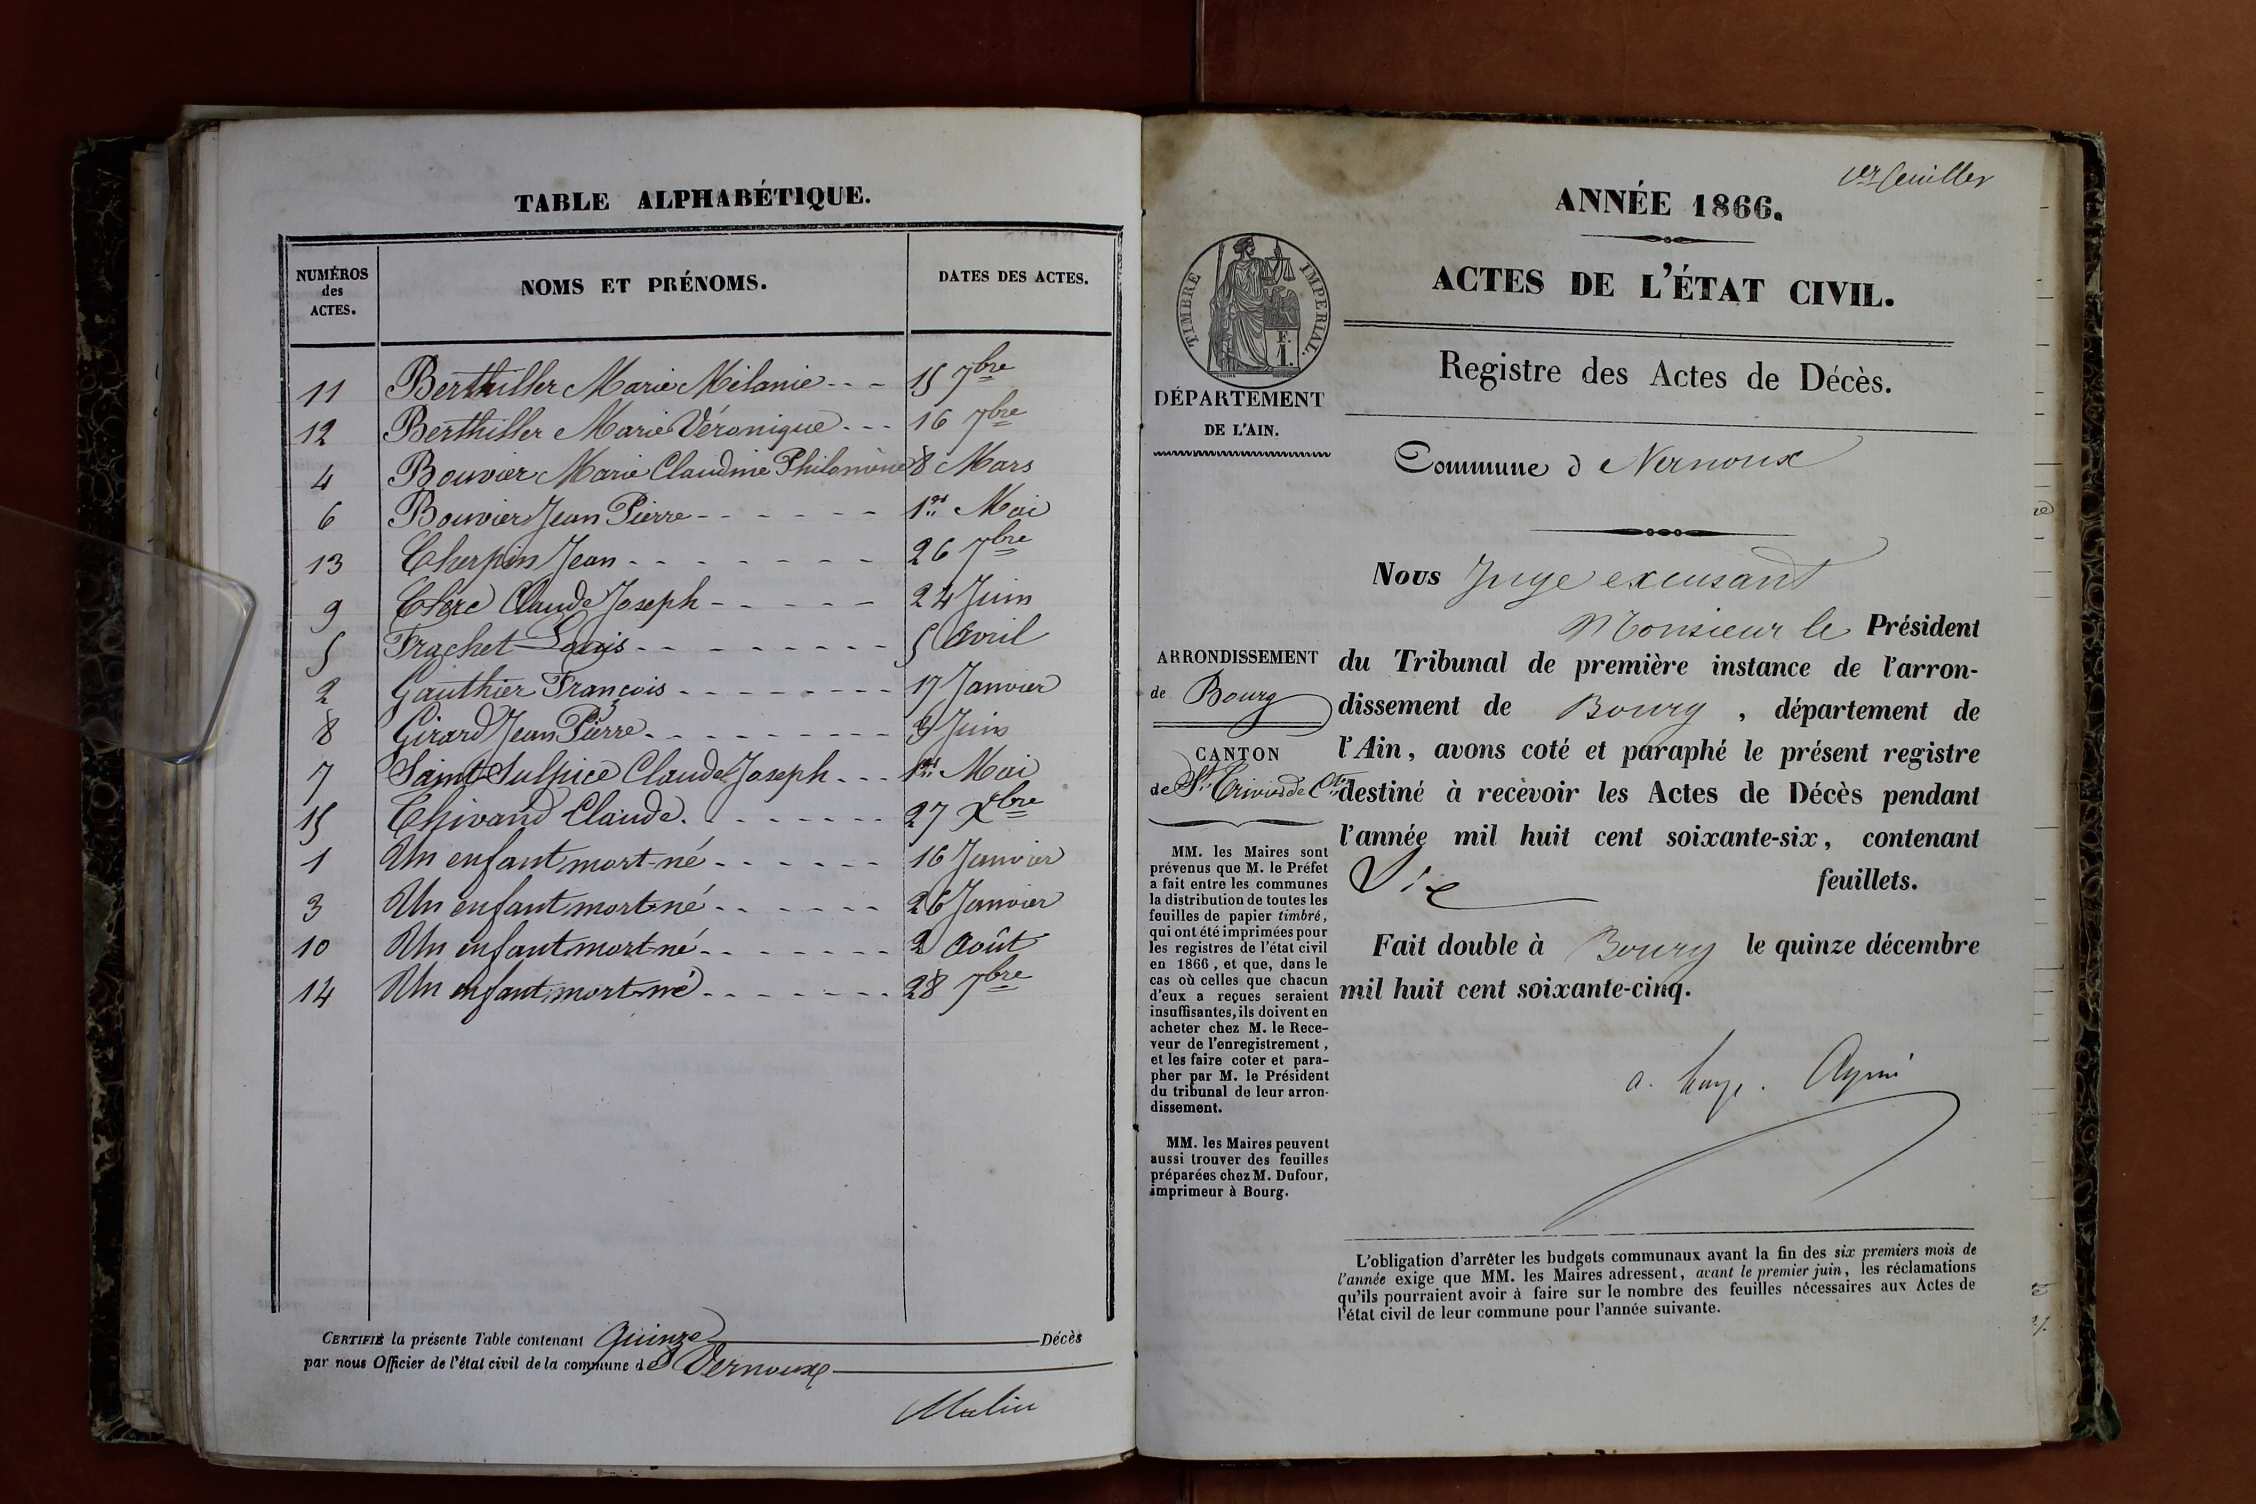 TABLE ALPHABÉTIQUE.
NUMÉROS des ACTES. NOMS ET PRÉNOMS. DATES DES ACTES.
11 Berthiller Marie Mélanie 15 7bre
12 Berthiller Marie Véronique 16 7bre
4 Bouvier Marie Claudine Philomène 8 Mars
6 Bouvier Jean Pierre 1er Mai
13 Cherpin Jean 26 7bre
9 Clerc Claude Joseph 24 Juin
5 Frachet Louis 5 Avril
2 Gauthier François 17 Janvier
8 Girard Jean Pierre 9 Juin
7 Saint-Sulpice Claude Joseph 1er Mai
15 Thivand Claude 27 Xbre
1 Un enfant mort-né 16 Janvier
3 Un enfant mort-né 26 Janvier
10 Un enfant mort-né 2 Août
14 Un enfant mort-né 28 7bre
CERTIFIÉ la présente Table contenant Quinze Décès
par nous Officier de l'état civil de la commune de Vernoux
1er feuillet
ANNÉE 1866.
ACTES DE L'ÉTAT CIVIL.
TIMBRE IMPERIAL.
F.
1.
Registre des Actes de Décès.
DÉPARTEMENT
DE L'AIN.
Commune d e Vernoux
Nous Juge excusant
Monsieur le Président
du Tribunal de première instance de l'arron-
dissement de Bourg, département de
l'Ain, avons coté et paraphé le présent registre
destiné à recevoir les Actes de Décès pendant
l'année mil huit cent soixante-six, contenant
Six feuillets.
Fait double à Bourg le quinze décembre
mil huit cent soixante-cinq.
ARRONDISSEMENT
de Bourg
CANTON
de St Trivier de Ctes
MM. les Maires sont
prévenus que M. le Préfet
a fait entre les communes
la distribution de toutes les
feuilles de papier timbré,
qui ont été imprimées pour
les registres de l'état civil
en 1866, et que, dans le
cas où celles que chacun
d'eux a reçues seraient
insuffisantes, ils doivent en
acheter chez M. le Rece-
veur de l'enregistrement,
et les faire coter et para-
pher par M. le Président
du tribunal de leur arron-
dissement.
MM. les Maires peuvent
aussi trouver des feuilles
préparées chez M. Dufour,
imprimeur à Bourg.
L'obligation d'arrêter les budgets communaux avant la fin des six premiers mois de
l'année exige que MM. les Maires adressent, avant le premier juin, les réclamations
qu'ils pourraient avoir à faire sur le nombre des feuilles nécessaires aux Actes de
l'état civil de leur commune pour l'année suivante.